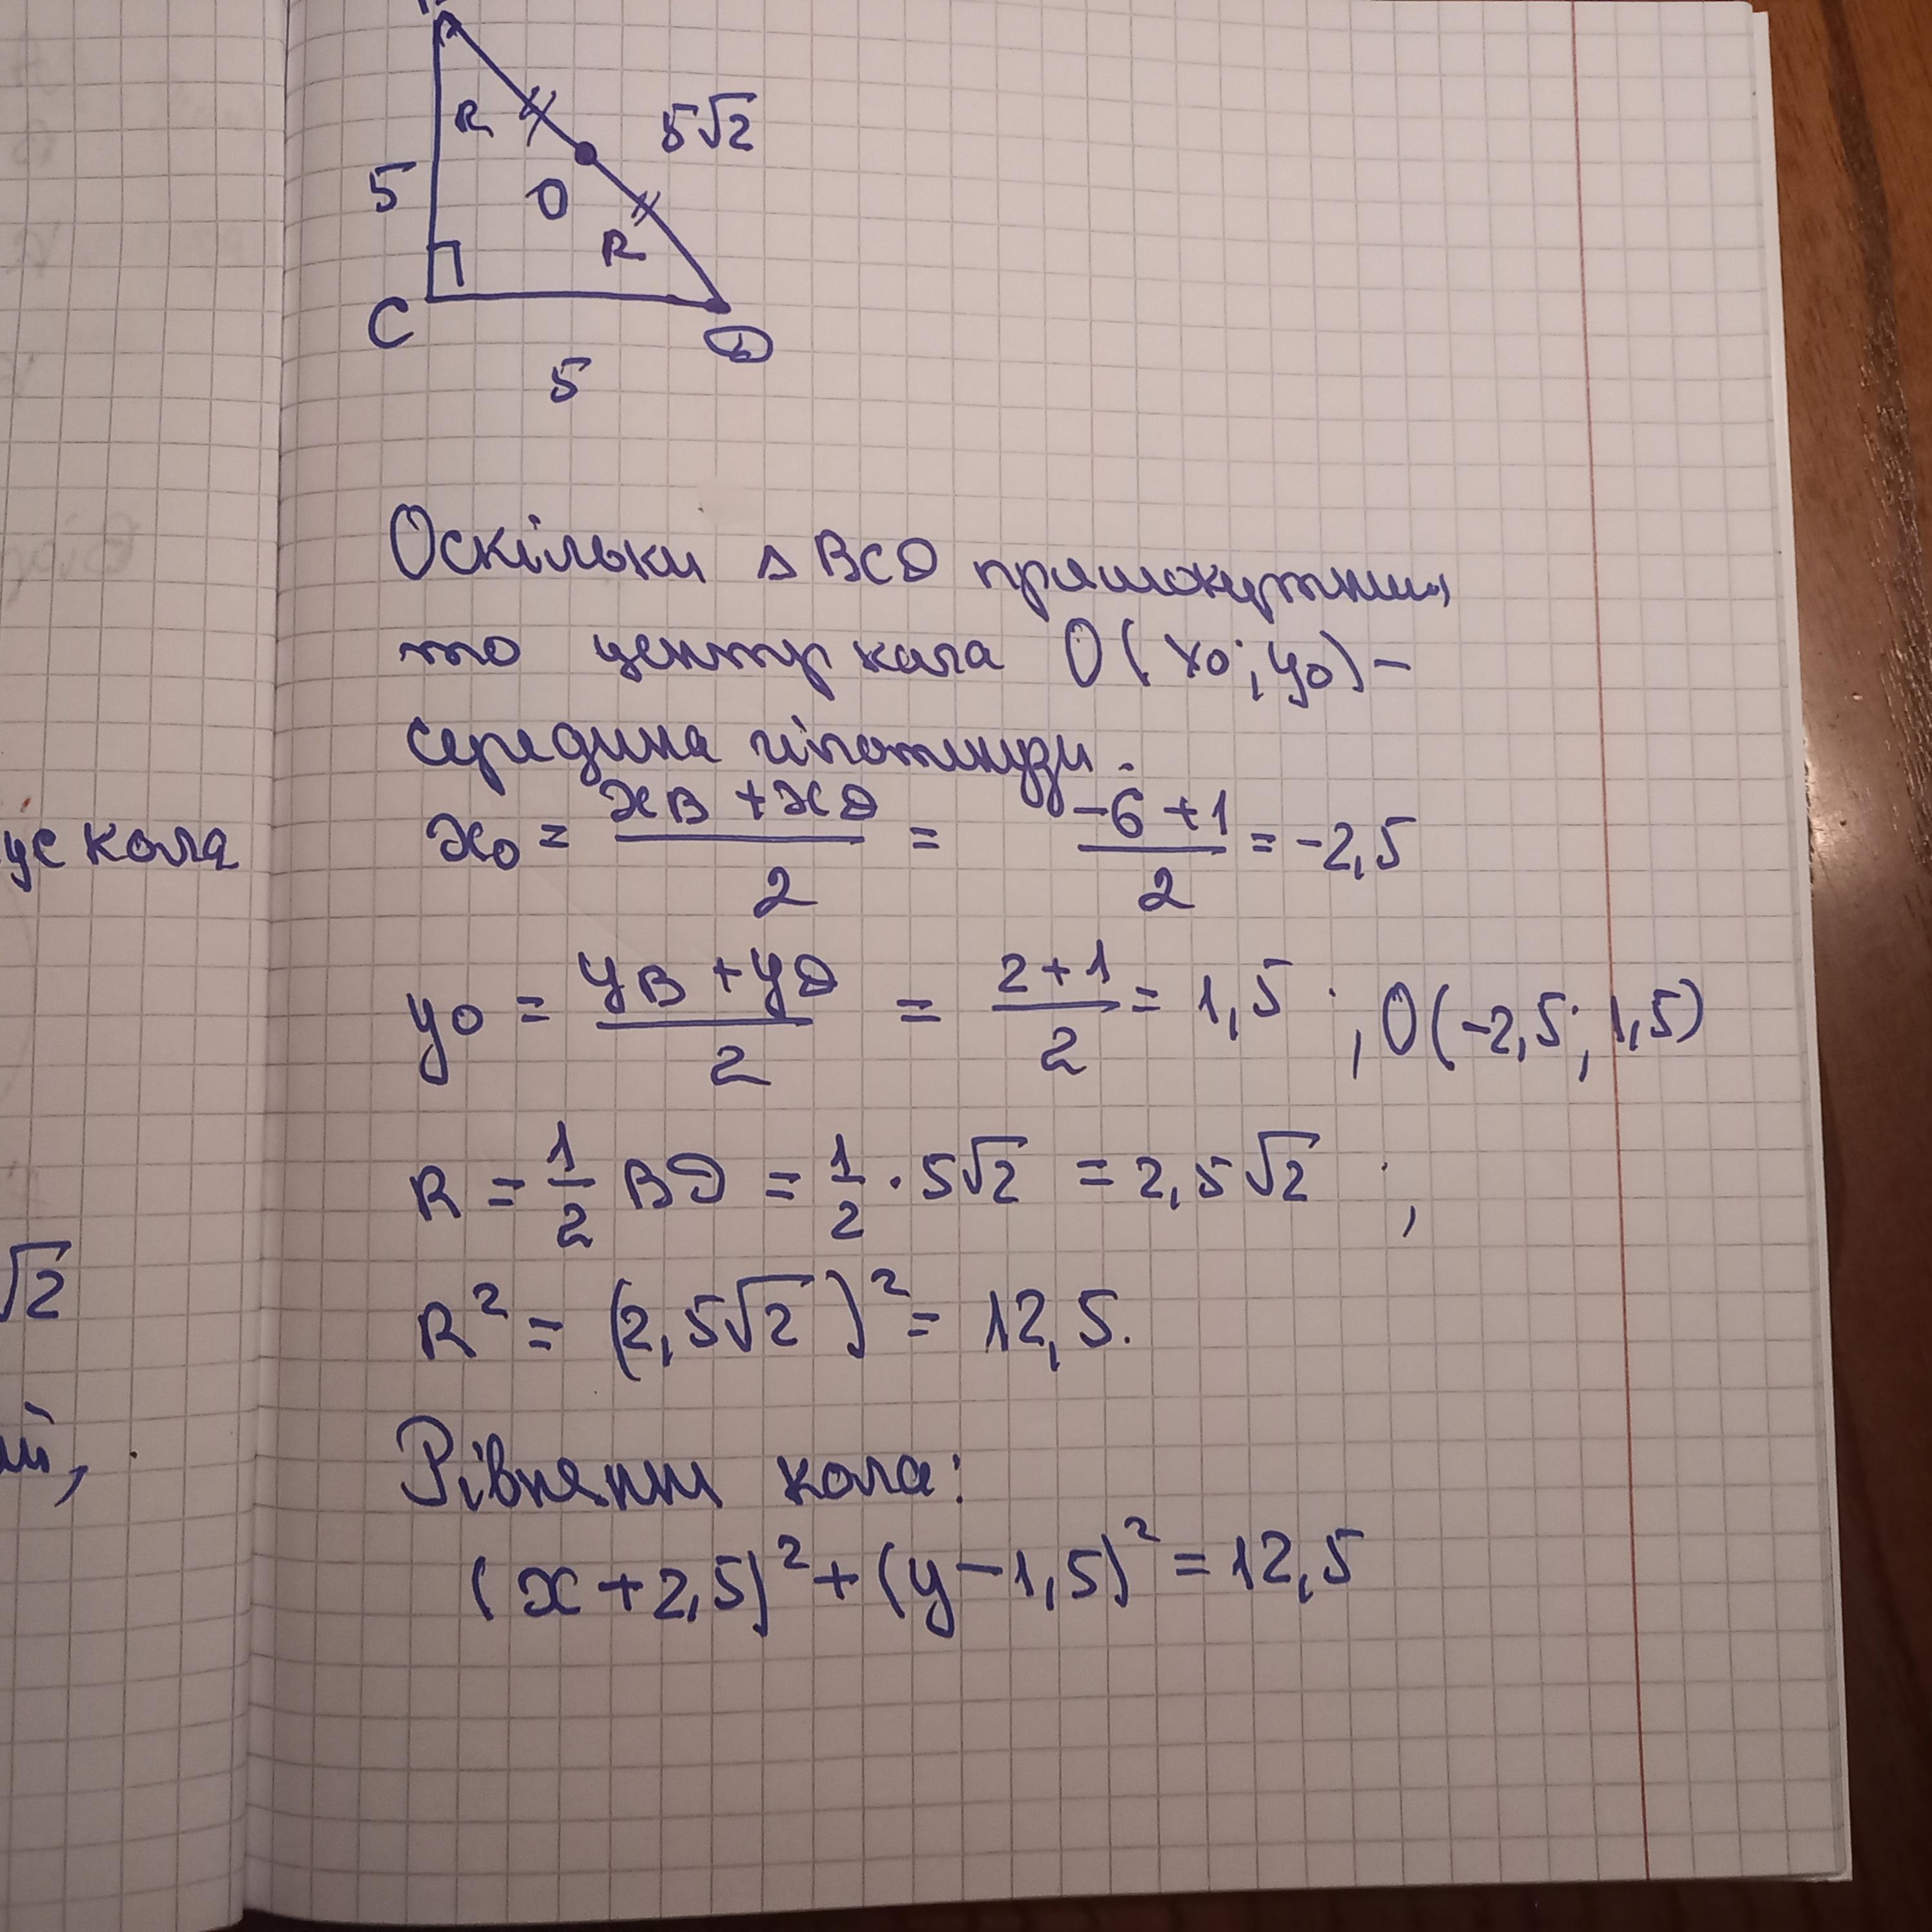 R
5√2
5
O
R
C
D
5
Оскільки △BCD прямокутний,
то центр кола O(x₀; y₀) –
середина гіпотенузи.
x₀ = (x_B + x_D)/2 = (-6 + 1)/2 = -2,5
y₀ = (y_B + y_D)/2 = (2 + 1)/2 = 1,5 ; O(-2,5; 1,5)
R = 1/2 BD = 1/2 · 5√2 = 2,5√2 ;
R² = (2,5√2)² = 12,5.
Рівняння кола:
(x + 2,5)² + (y – 1,5)² = 12,5
кола
√2